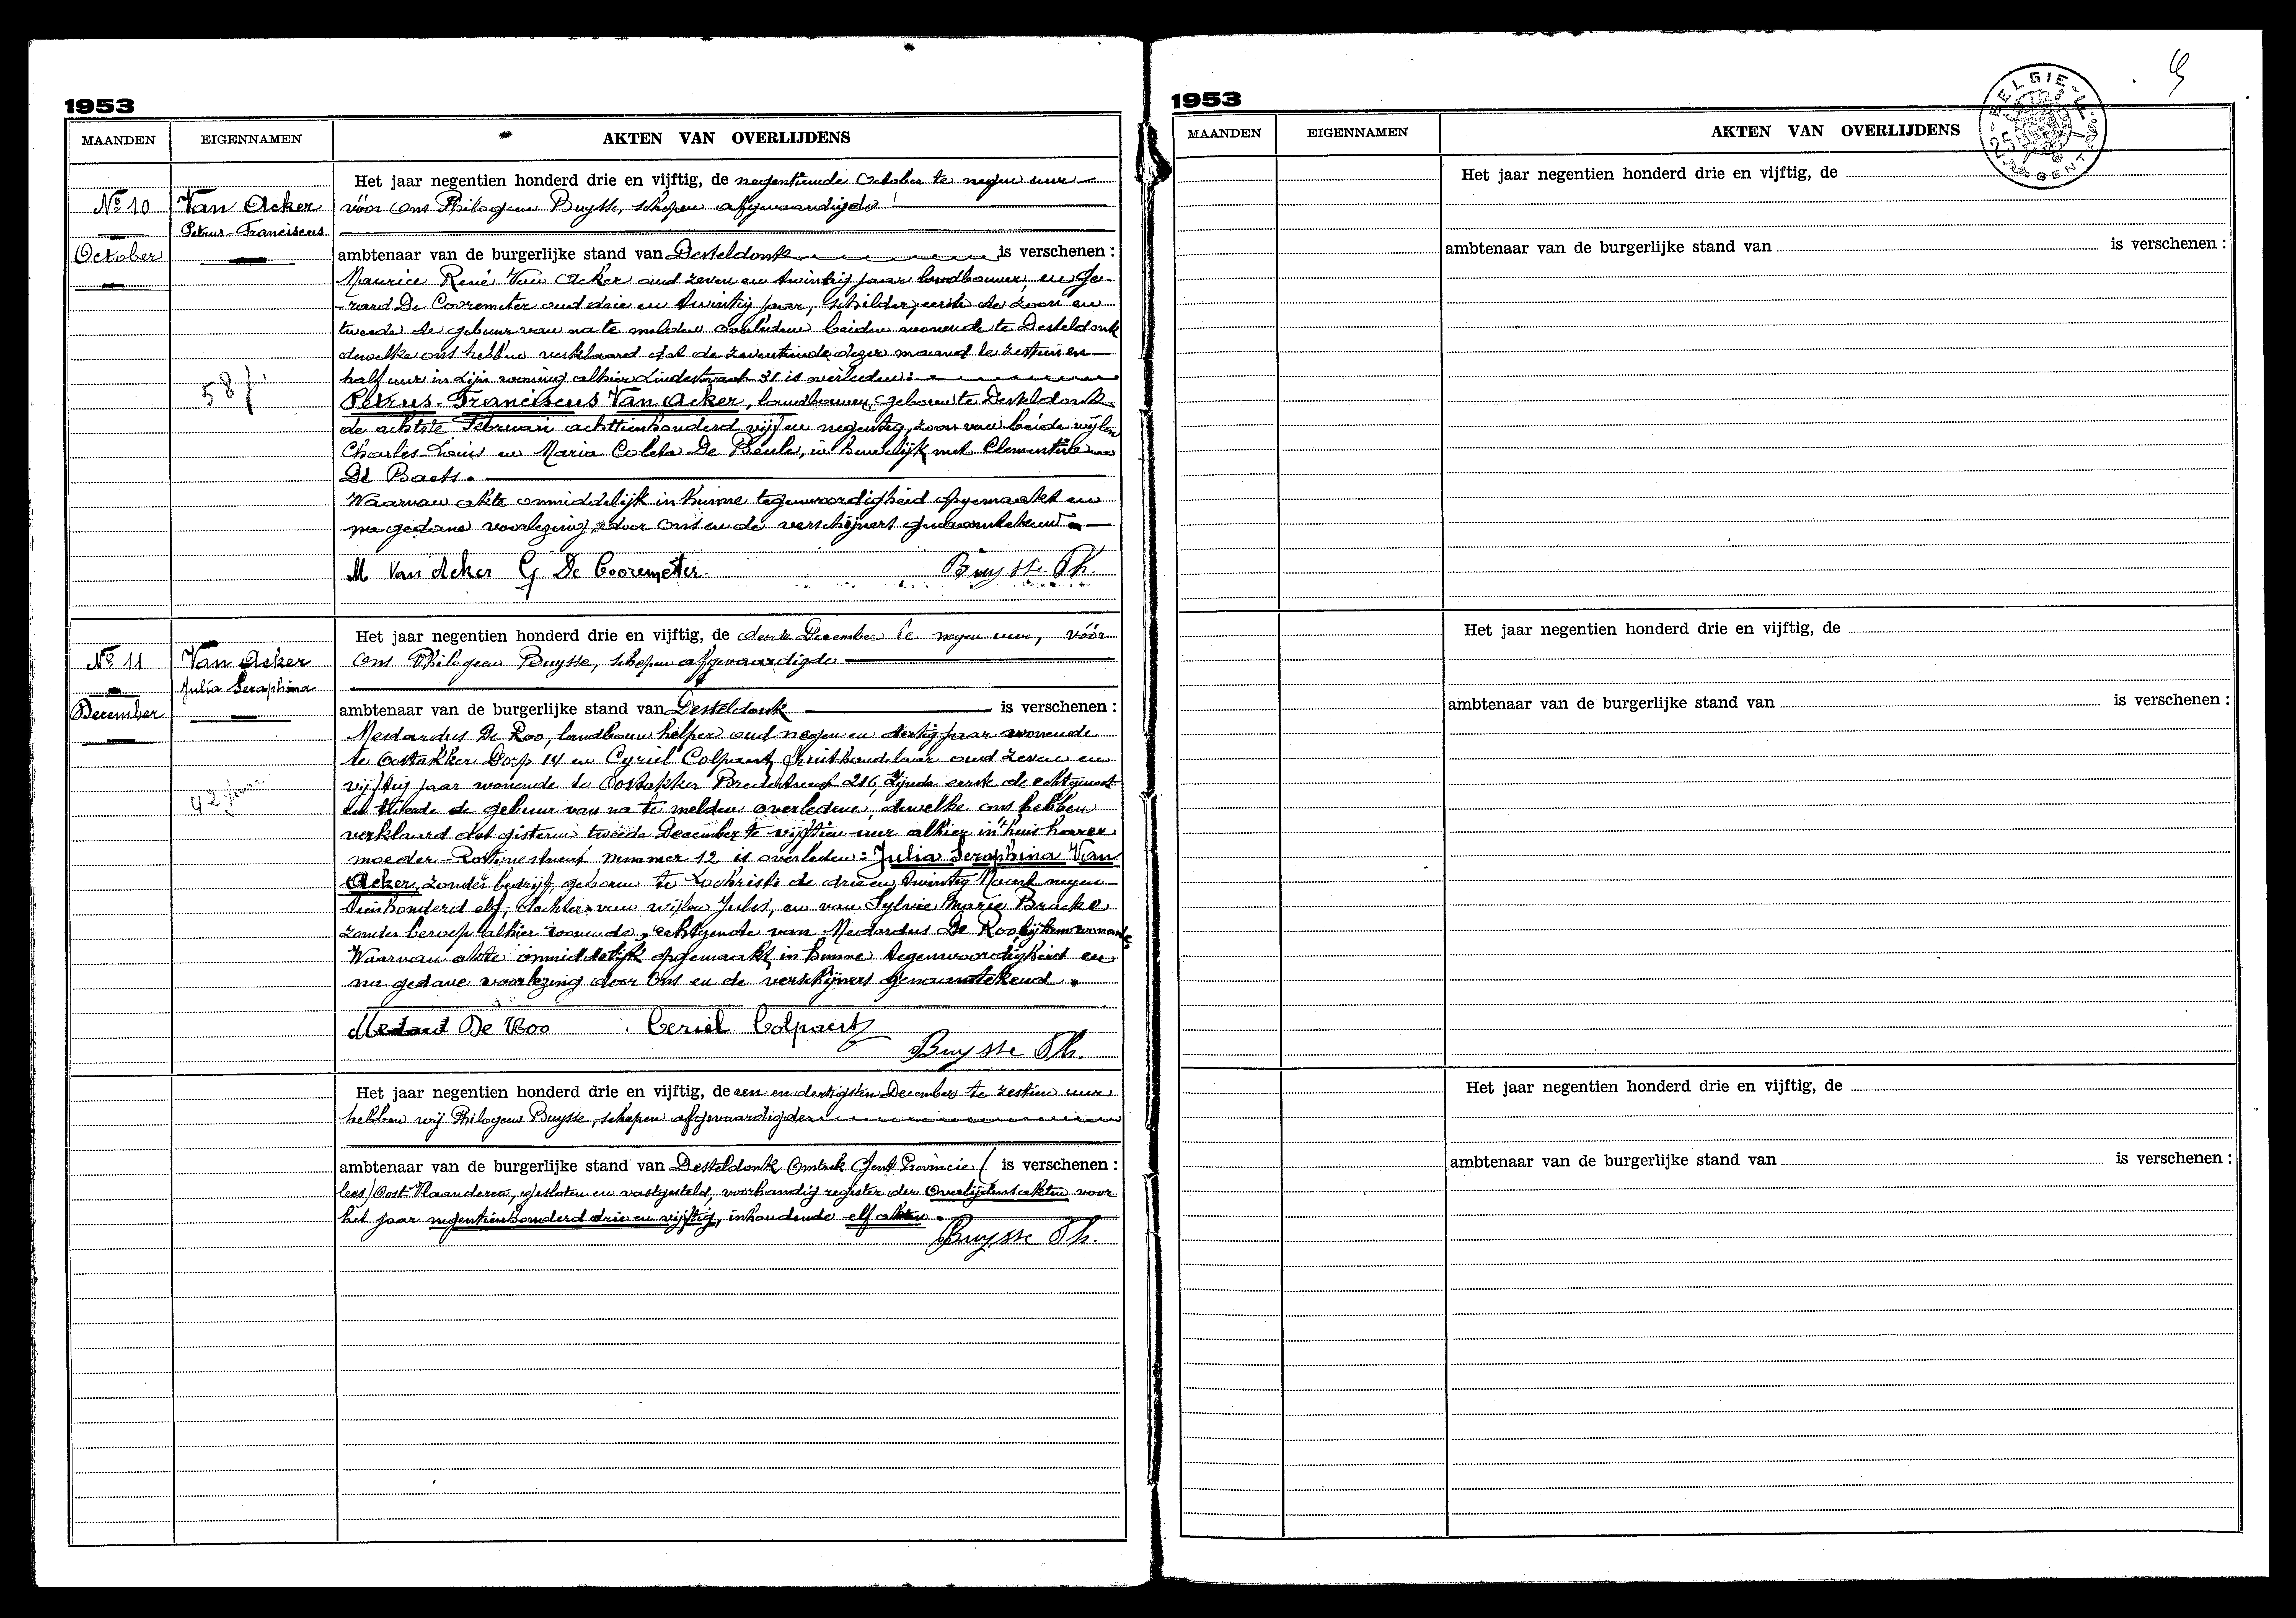 1953
MAANDEN EIGENNAMEN AKTEN VAN OVERLIJDENS
Het jaar negentien honderd drie en vijftig, de negentiende October te negen uur
No 10 Van Acker vóór Ons Philogeen Buysse, schepen afgevaardigde
Petrus-Franciscus
October ambtenaar van de burgerlijke stand van Desteldonk is verschenen :
Maurice René Van Acker oud zeven en twintig jaar landbouwer, en Ge-
rard De Cooremeter oud drie en twintig jaar, schilder, eerste de zoon en
tweede de gebuur van na te melden overledene beiden wonende te Desteldonk
dewelke ons hebben verklaard dat de zeventiende dezer maand te zestien en
half uur in zijn woning alhier Lindestraat 31 is overleden :
58 j. Petrus-Franciscus Van Acker, landbouwer, geboren te Desteldonk
de achtste Februari achttienhonderd vijf en negentig, zoon van beide wijlen
Charles-Louis en Maria Coleta De Beule, in huwelijk met Clementine
De Baets.
Waarvan akte onmiddelijk in hunne tegenwoordigheid opgemaakt en
na gedane voorlezing, door Ons en de verschijners genaamtekend.
M Van Acker G. De Cooremeter. Buysse Ph.
Het jaar negentien honderd drie en vijftig, de derde December te negen uur, vóór
No 11 Van Acker Ons Philogeen Buysse, schepen afgevaardigde
Julia Seraphina
December ambtenaar van de burgerlijke stand van Desteldonk is verschenen :
Medardus De Roo, landbouw helper oud negen en dertig jaar wonende
te Oostakker Dorp 14 en Cyriel Colpaert fruithandelaar oud zeven en
vijftig jaar wonende te Oostakker 216, zijnde eerste de echtgenoot
42 jaar en tweede de gebuur van na te melden overledene, dewelke ons hebben
verklaard dat gisteren tweede December te vijftien uur alhier in 't huis harer
moeder nummer 12 is overleden : Julia Seraphina Van
Acker, zonder bedrijf, geboren te Lochristi de drie en twintig Maart negen-
tienhonderd elf, dochter van wijlen Jules, en van Sylvie Marie Bracke
zonder beroep alhier wonende, echtgenote van Medardus De Roo
Waarvan akte onmiddelijk opgemaakt in hunne tegenwoordigheid en
na gedane voorlezing door Ons en de verschijners genaamtekend.
Medard De Roo Ceriel Colpaert
Buysse Ph.
Het jaar negentien honderd drie en vijftig, de een en dertigsten December te zestien uur
hebben wij Philogeen Buysse, schepen afgevaardigde
ambtenaar van de burgerlijke stand van Desteldonk Omtrek Gent Provincie ( is verschenen :
Oost Vlaanderen, gesloten en vastgesteld, voorhandig register der Overlijdensakten voor
het jaar negentienhonderd drie en vijftig, inhoudende elf akten.
Buysse Ph.
1953
MAANDEN EIGENNAMEN AKTEN VAN OVERLIJDENS
BELGIE
25
GENT
Het jaar negentien honderd drie en vijftig, de
ambtenaar van de burgerlijke stand van is verschenen :
Het jaar negentien honderd drie en vijftig, de
ambtenaar van de burgerlijke stand van is verschenen :
Het jaar negentien honderd drie en vijftig, de
ambtenaar van de burgerlijke stand van is verschenen :